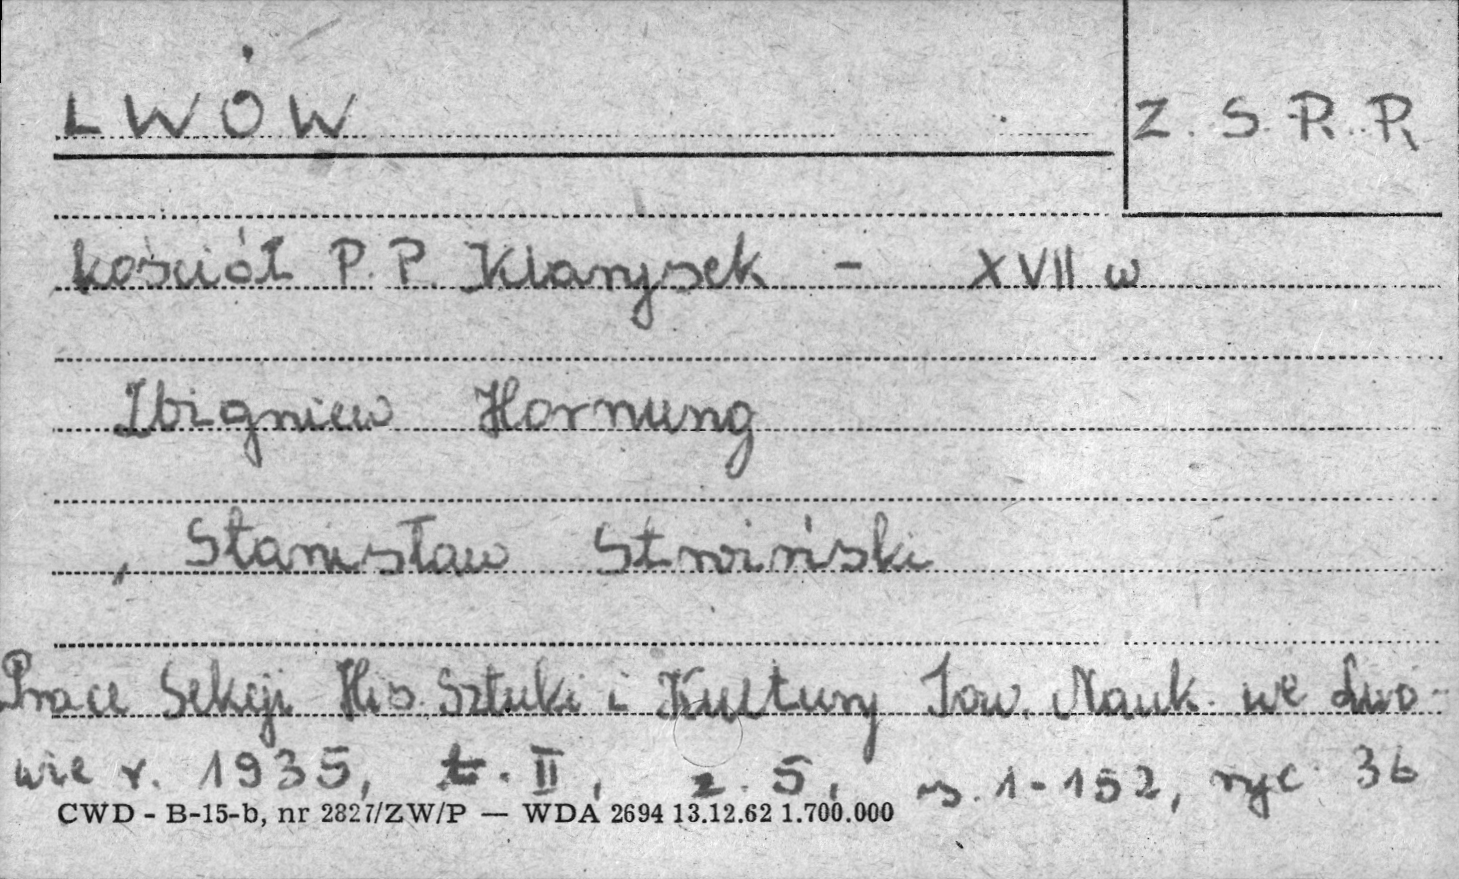 LWÓW
Z.S.R.R
kościół P.P. Klarysek - XVII w
Zbigniew Hornung
, Stanisław Stroiński
Prace Sekcji His. Sztuki i Kultury Tow. Nauk. we Lwo-
wie r. 1935, t. II, z. 5, s. 1-152, ryc 36
CWD - B-15-b, nr 2827/ZW/P — WDA 2694 13.12.62 1.700.000